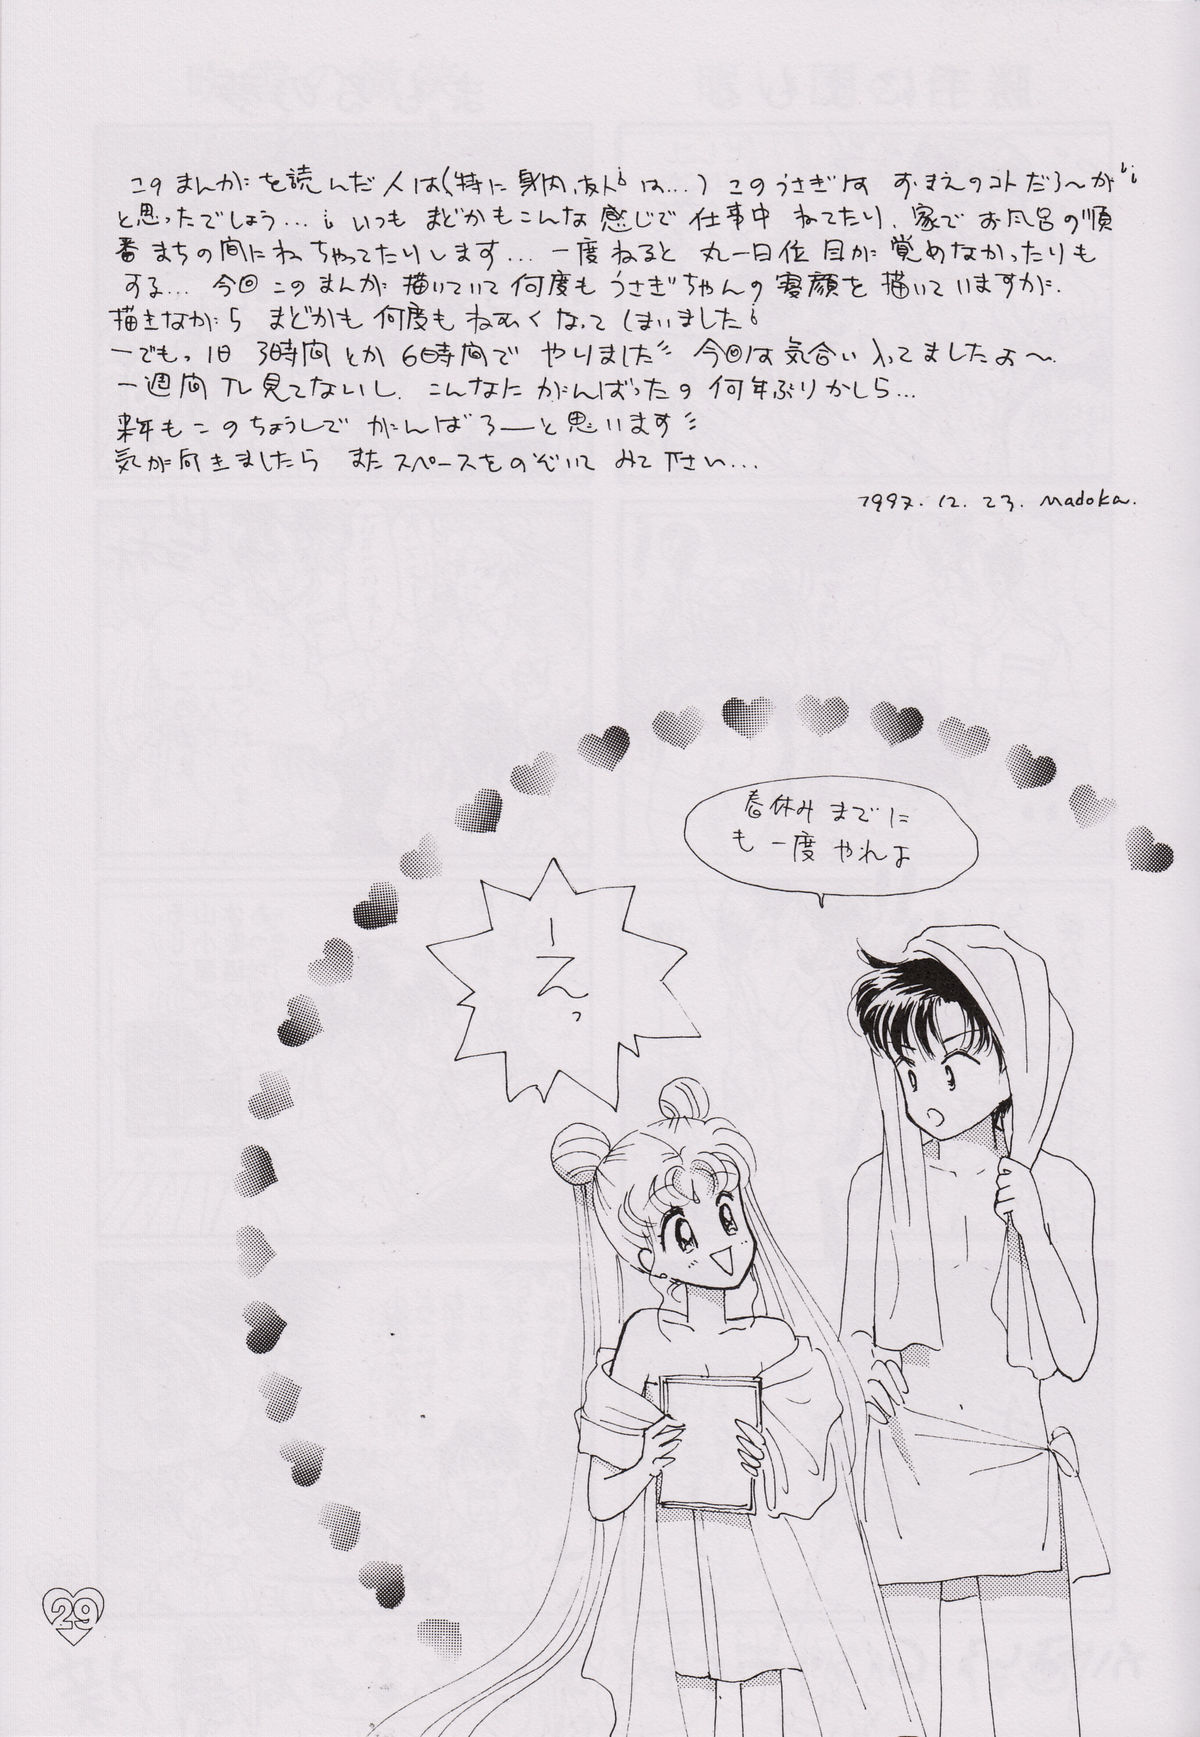 このまんがを読んだ人は(特に身内、友人は…)このうさぎは おまえのコトだろ〜が!!
と思ったでしょう…! いつも まどかもこんな感じで 仕事中 ねてたり、家で お風呂の順
番まちの間に ねちゃってたりします… 一度ねると 丸一日位 目が覚めなかったりも
する… 今回このまんが描いていて何度もうさぎちゃんの寝顔を描いていますが、
描きながら まどかも 何度も ねむくなってしまいました!
ーでもっ1日 3時間とか6時間で やりました!! 今回は気合い入ってましたよ〜
一週間TV見てないし、こんなにがんばったの何年ぶりかしら…
来年もこのちょうしで がんばろーと思います!!
気が向きましたら またスペースをのぞいて みて下さい…
1997.12.23. Madoka.
春休みまでに
も一度やれよ
えーっ
29